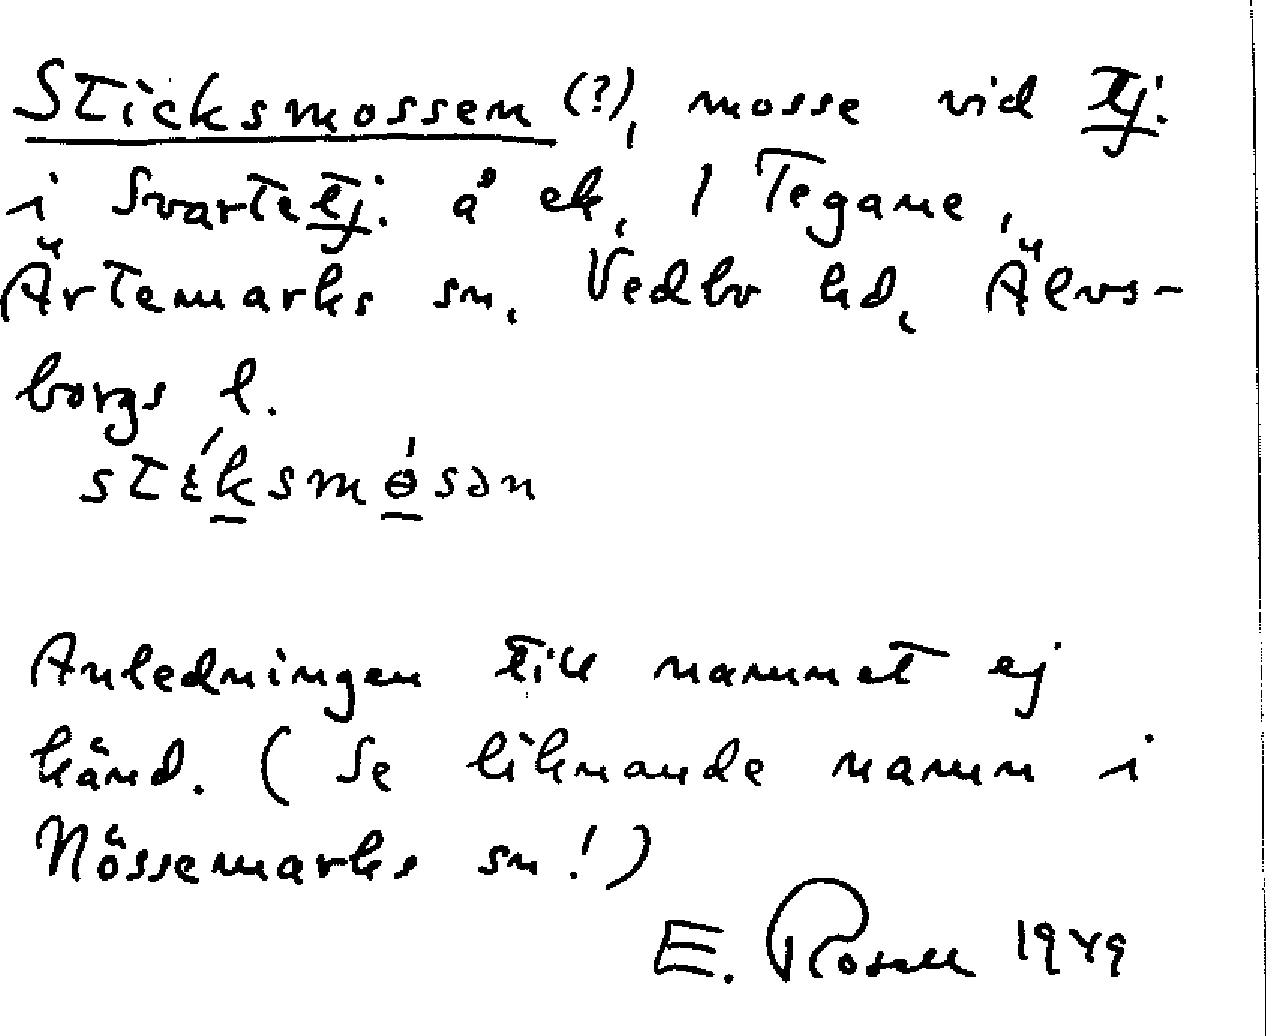 Sticksmossen (?), mosse vid tj.
i Svartetj. å ek. 1 Tegane,
Ärtemarks sn, Vedbo hd, Älvs-
borgs l.
Anledningen till namnet ej
känd. (Se liknande namn i
Nössemarks sn!)
E. Rosell 1949